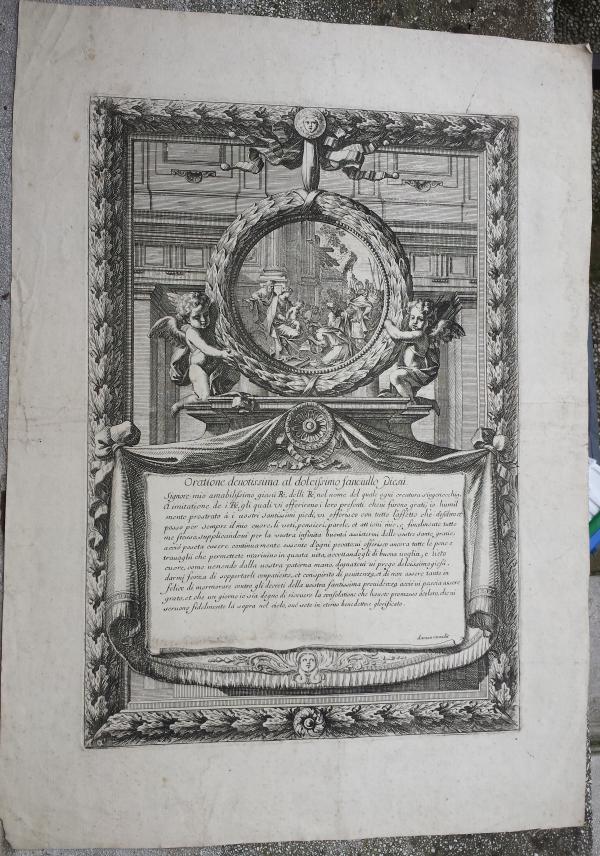 Oratione deuotissima al dolcissimo fanciullo Giesu
Signore mio amabilissimo giesu Re, delli Re, nel nome del quale ogni creatura s'ingenocchia,
A imitatione de i Re, gli quali vi offerirono i loro presenti che ui furono grati, io humil
mente prostrato à i uostri santissimi piedi, vi offerisco con tutto l'affetto che desidera
passo per sempre il mio cuore, li uoti, pensieri, parole, et attioni mie, e finalmente tutto
me stesso, supplicandoui per la uostra infinita bontà assistermi delle uostre sante gratie,
acciò possa essere continuamente essente d'ogni peccato, ui offerisco ancora tutte le pene e
trauagli che permettete interuino in questa uita, accettandogli di buona uoglia, e lieto
cuore, come uenendo dalla uostra paterna mano, degnateui ui prego dolcissimo giesu,
darmi forza di sopportarli con patienza, et con spirito di penitenza, et di non essere tanto in
felice di mormorare contro gli decreti della uostra santissima prouidenza acciò in patria essere
grato, et che un giorno io sia degno di riceuere la consolatione che hauete promesso à coloro, che ui
seruono fidelmente la sopra nel cielo, oue sete in eterno benedetto e glorificato.